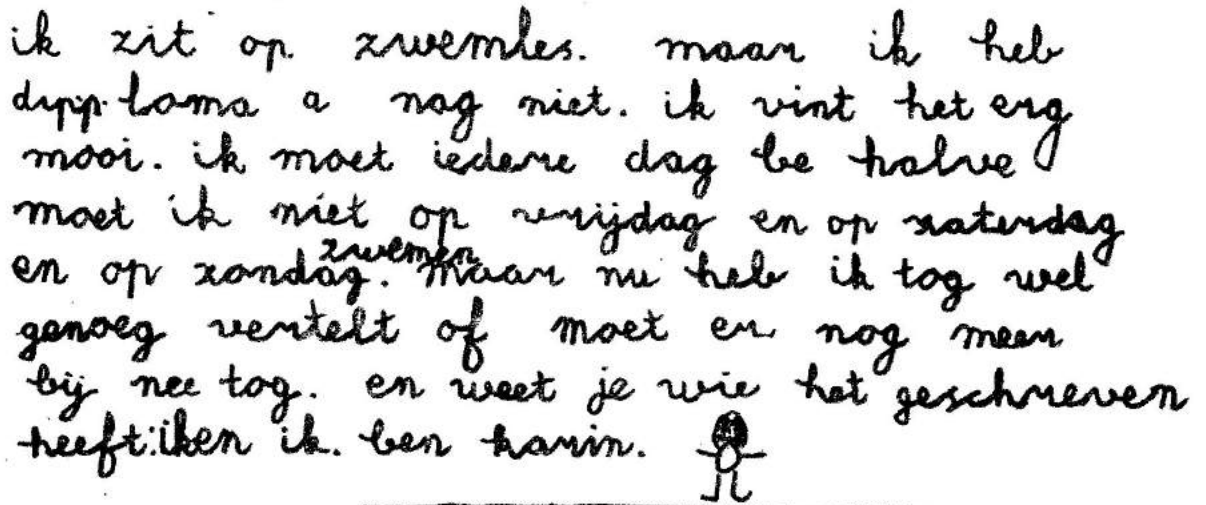 ik zit op zwemles. maar ik heb
dipp.loma a nog niet. ik vint het erg
mooi. ik moet iedere dag be halve
moet ik niet op vrijdag en op zaterdag
en op zondag. zwemen maar nu heb ik tog wel
genoeg vertelt of moet er nog meer
bij nee tog. en weet je wie het geschreven
heeft: ik en ik. ben karin.